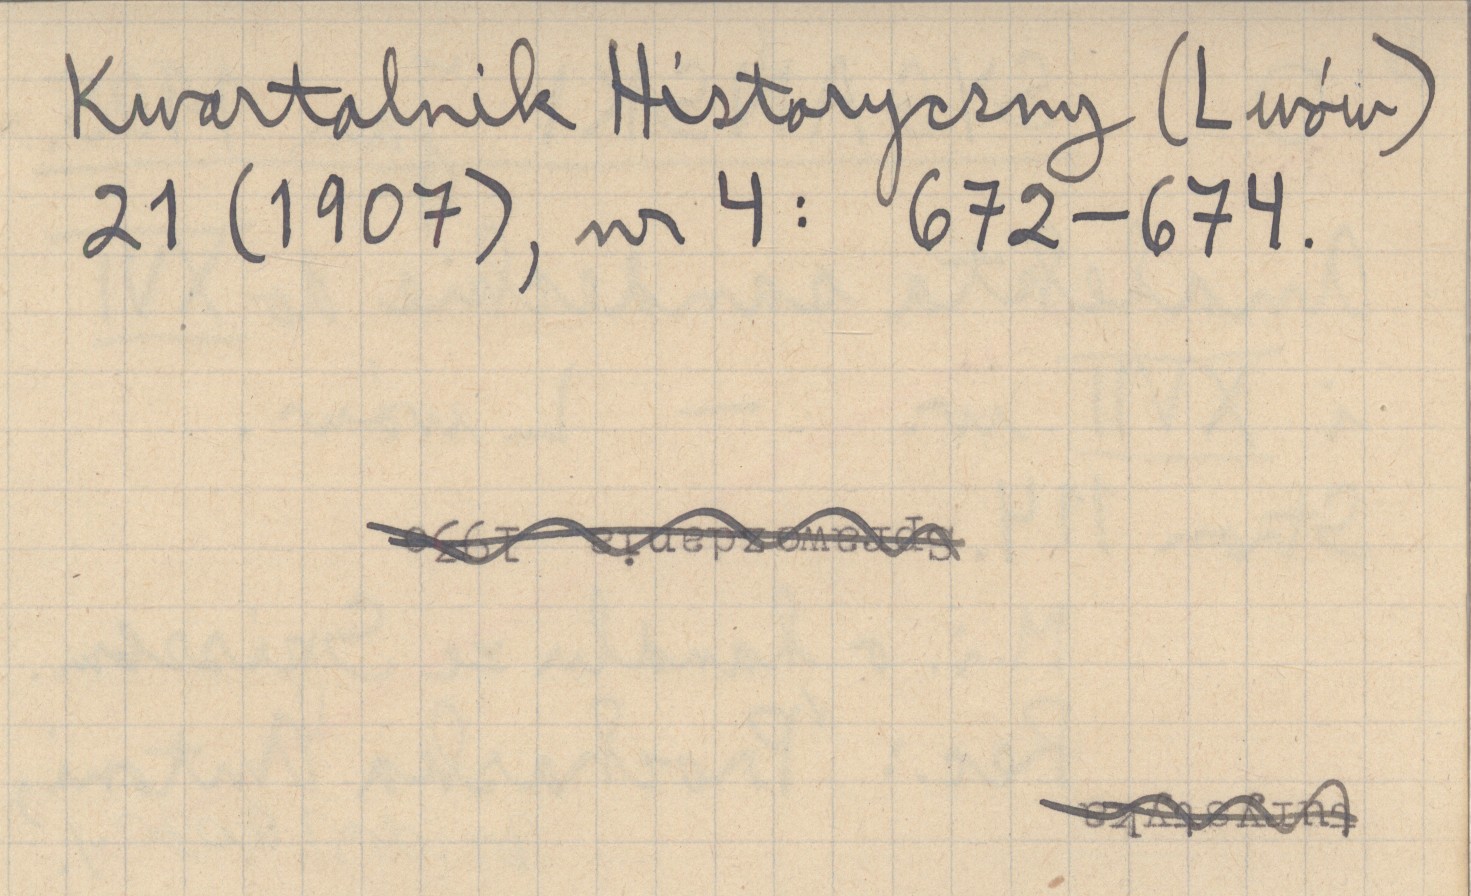 Kwartalnik Historyczny (Lwów)
21 (1907), nr 4: 672-674.
Sprawozdania